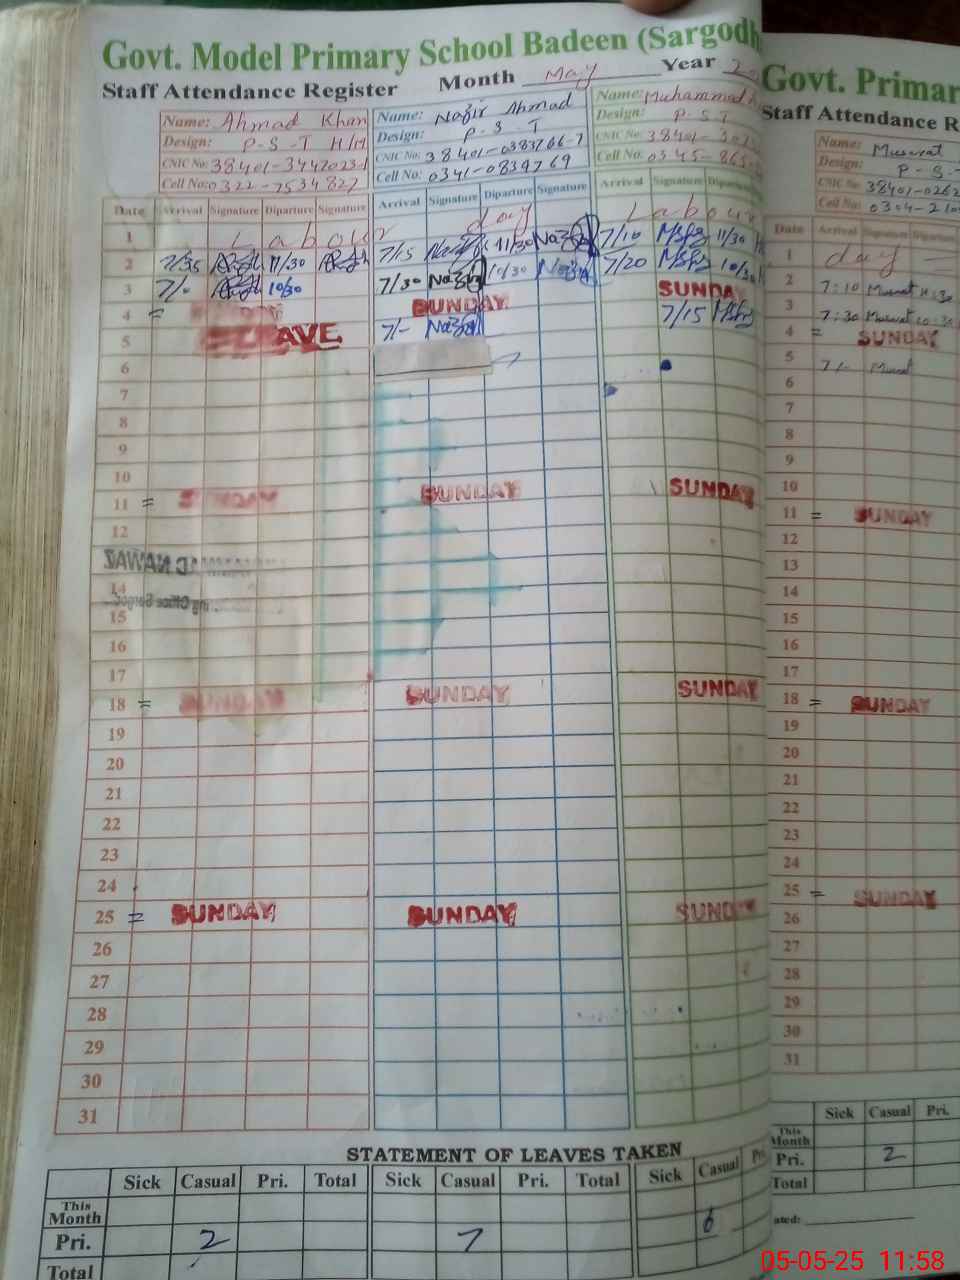 Govt. Model Primary School Badeen (Sargodh
Staff Attendance Register Month May Year
Name: Ahmad Khan
Design: P-S-T H/M
CNIC No: 38401-3447023-1
Cell No: 0322-7534827
Name: Nazir Ahmad
Design: P-S-T
CNIC No: 38401-0383766-7
Cell No: 0341-0834769
Name: Muhammad
Design: P-S-T
CNIC No: 38401-
Cell No: 0345-
Date Arrival Signature Diparture Signature Arrival Signature Diparture Signature Arrival Signature Diparture
1 Labour day Labour
2 7/35 11/30 7/15 Nazir 11/30 Nazir 7/10 11/30
3 7/- 10/30 7/30 Nazir 10/30 Nazir 7/20 10/30
4 = SUNDAY SUNDAY
5 LEAVE 7/- Nazir 7/15
6
7
8
9
10
11 = SUNDAY SUNDAY SUNDAY
12
NAWAZ
14
15
16
17
18 = SUNDAY SUNDAY SUNDAY
19
20
21
22
23
24
25 = SUNDAY SUNDAY SUNDAY
26
27
28
29
30
31
STATEMENT OF LEAVES TAKEN
Sick Casual Pri. Total Sick Casual Pri. Total Sick Casual Pri
This Month
Pri. 2 7 6
Total
Govt. Primar
Staff Attendance R
Name: Musarat
Design: P-S-
CNIC No 38401-0262
Cell No: 0304-210
Date Arrival Signature Diparture
1 day
2 7:10 Musarat 11:30
3 7:30 Musarat 10:30
4 = SUNDAY
5 7/- Musarat
6
7
8
9
10
11 = SUNDAY
12
13
14
15
16
17
18 = SUNDAY
19
20
21
22
23
24
25 = SUNDAY
26
27
28
29
30
31
Sick Casual Pri.
This Month
Pri. 2
Total
ated:
05-05-25 11:58